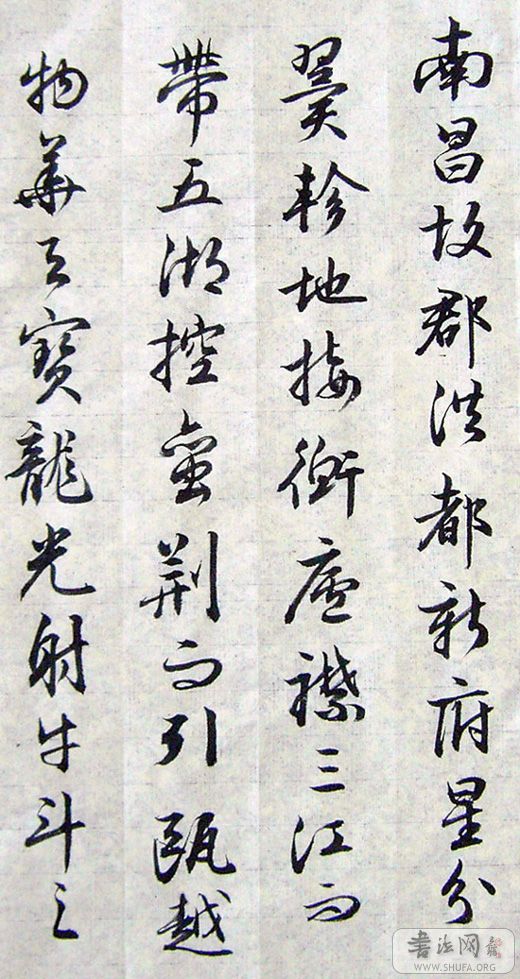 南昌故郡洪都新府星分
翼軫地接衡廬襟三江而
帶五湖控蠻荊而引甌越
物華天寶龍光射牛斗之
書法网
WWW.SHUFA.ORG